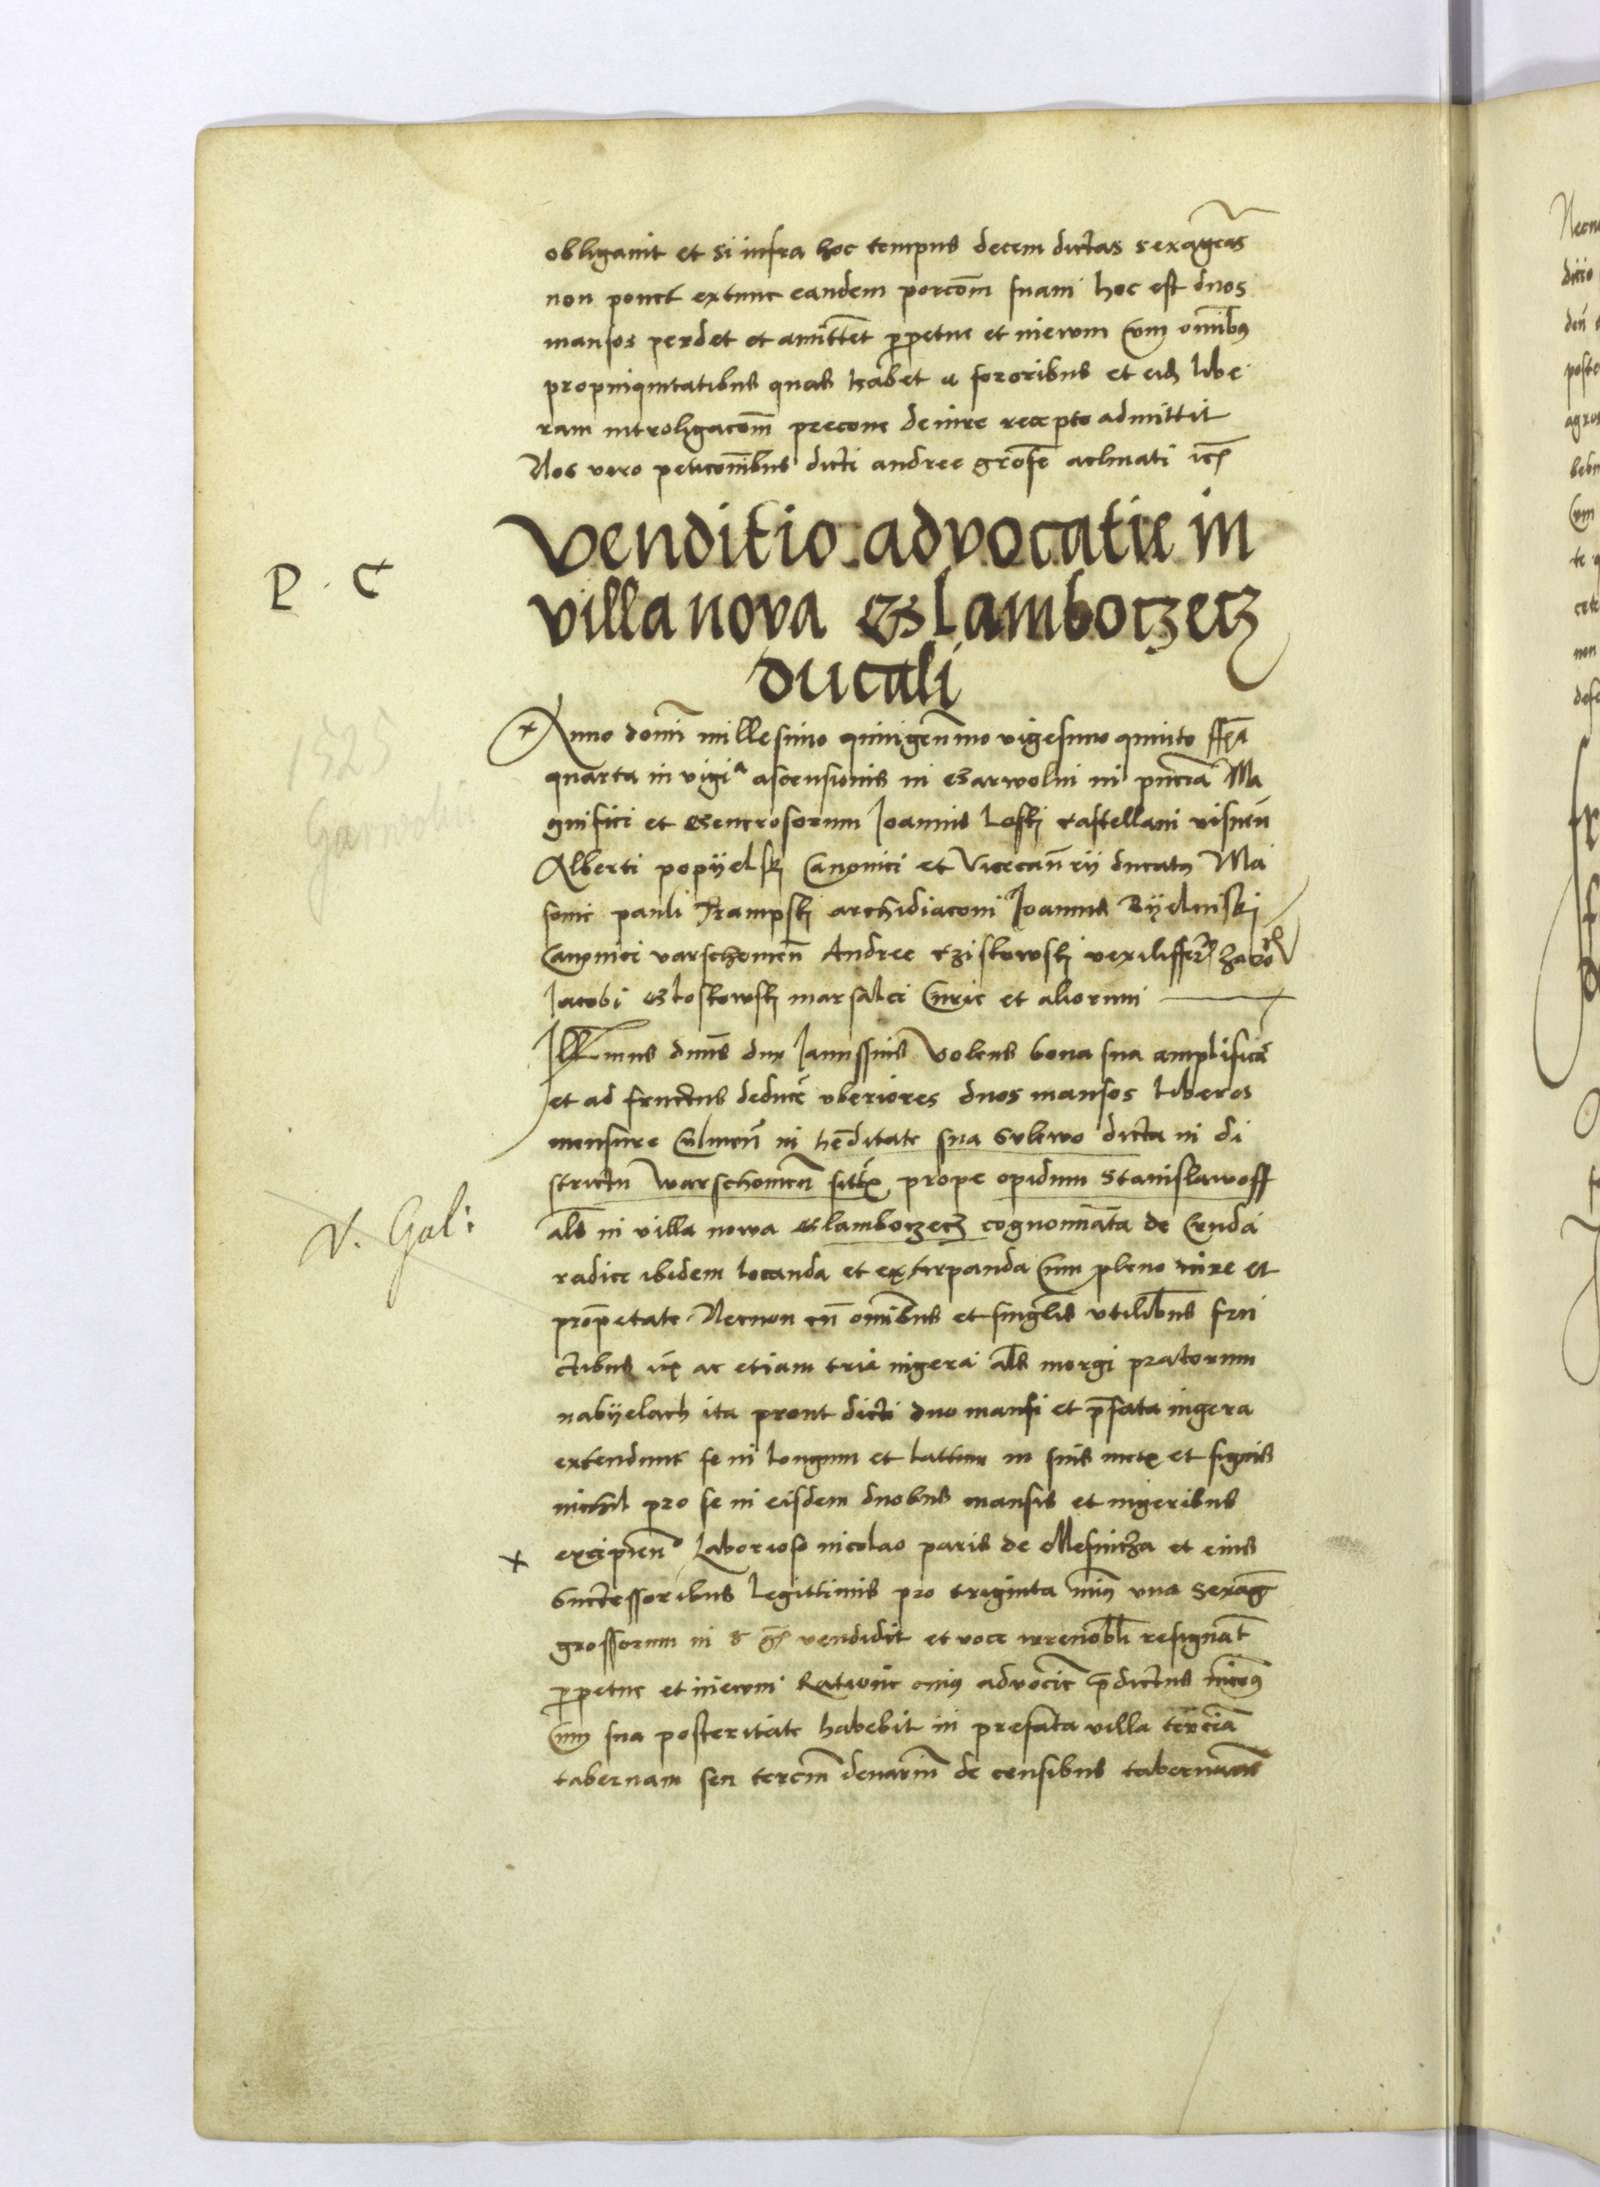 obligavit et si infra hoc tempus decem dictas sexagenas
non ponet extunc eandem porcōm suam hoc est duos
mansos perdet et amittet ꝑpetue et in evum cum omībꝫ
propinquitatibus quas habet a sororibus et eidē libe
ram intro ligacōm precone de iure recepto admittit
Nos vero peticōnibus dicti andree grose aclinati ꝛcꝫ
Venditio advocatie in
P . C
villa nova Glamboczecz
ducali
Anno domī millesimo quingentesimo vigesimo quinto ffꝛia
1525
quarta in vigia ascensionis in Garwolin in pn̄cia Ma
gnifici et Generosorum Ioannis Loski castellani visnen̄
Garwolin
Alberti popyelski Canonici et Vicecan̄rii ducatꝫ Ma
sovie pauli krampski archidiaconi Ioannis Byelinski
Canonici varschovien̄ Andree czistowski vexilifferi
Iacobi Gloskowski marsalci Curie et aliorum
Illmus dn̄s dux Ianussius Volens bona sua amplificare
et ad fructus deducere vberiores duos mansos liberos
mensure Culmen̄ in hereditate sua Sulewo dicta in di
strictu Warschovien̄ sittis prope opidum Stanislawoff
V. Gali
als in villa nowa Glamboczecz cognominata de Cruda
radice ibidem locanda et extirpanda cum pleno iure et
proprietate Necnon cū omībus et singlis vtilībus fru
ctibus ac etiam tria iugera als morgi pratorum
nabyelach ita prout dicti duo mansi et p̄fata iugera
extendunt se in longum et lattum in suis metis et signis
nichil pro se in eisdem duobus mansis et iugeribus
excipien̄ Laborioso nicolao paris de Mesnicza et eius
Successoribus legittimis pro triginta minꝫ una sexag
grossorum in vendidit et voce irrevobli resignat
ꝑpetue et in evum Ratione cuius advocie p̄dictus nicos
cum sua posteritate habebit in prefata villa terciā
tabernam seu tercm denarium de censibus tabernarum